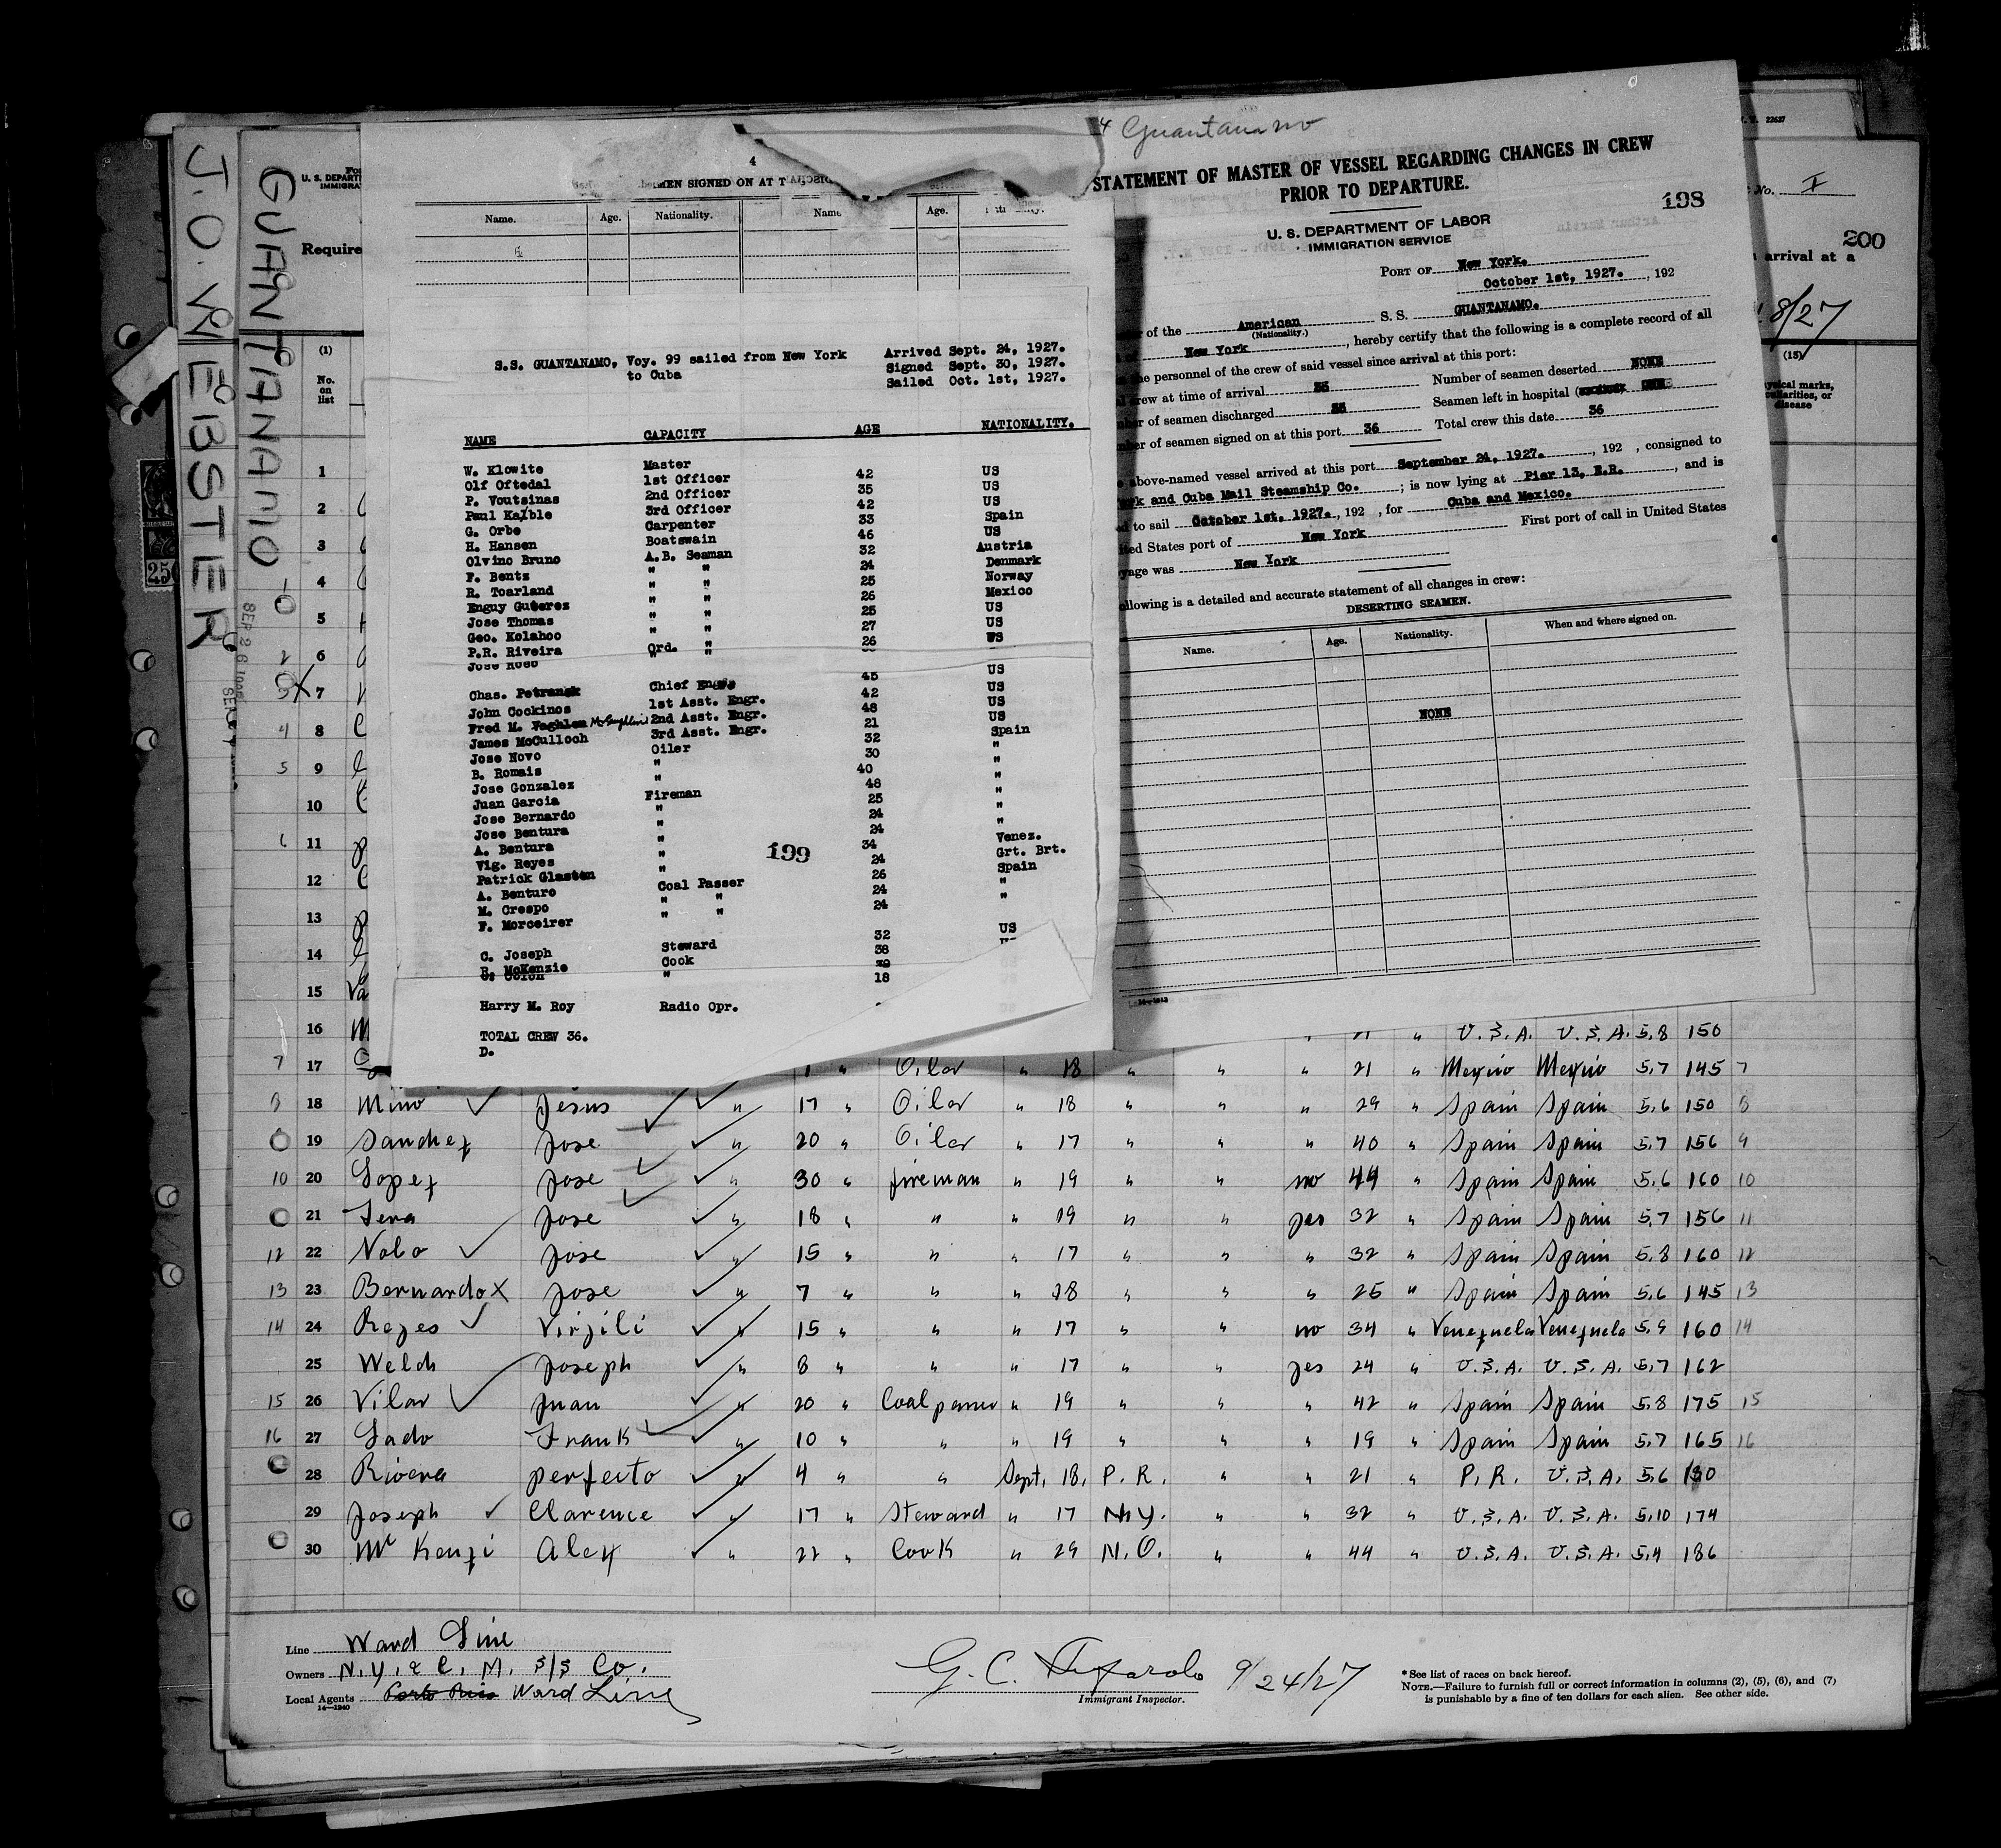 J. O. WEBSTER
GUANTANAMO
U. S. DEPART
IMMIGRA
Require
4
MEN SIGNED ON AT T
Name. Age. Nationality. Name Age.
S.S. GUANTANAMO, Voy. 99 sailed from New York Arrived Sept. 24, 1927.
to Cuba Signed Sept. 30, 1927.
Sailed Oct. 1st, 1927.
NAME CAPACITY AGE NATIONALITY.
W. Klowite Master
Olf Oftedal 1st Officer 42 US
P. Voutsinas 2nd Officer 35 US
Paul Kaible 3rd Officer 42 US
G. Orbe Carpenter 33 Spain
H. Hansen Boatswain 46 US
Olvino Bruno A.B. Seaman 32 Austria
F. Bentz " " 24 Denmark
R. Toarland " " 25 Norway
Enguy Guterez " " 26 Mexico
Jose Thomas " " 25 US
Geo. Kolahoo " " 27 US
P.R. Riveira Ord. " 26 US
Chas. Petransk Chief Engr. 45 US
John Cockinos 1st Asst. Engr. 42 US
Fred M. Vaghlen McLaughlin 2nd Asst. Engr. 48 US
James McCulloch 3rd Asst. Engr. 21 US
Jose Novo Oiler 32 Spain
B. Romais " 30 "
Jose Gonzalez " 40 "
Juan Garcia Fireman 48 "
Jose Bernardo " 25 "
Jose Bentura " 24 "
A. Bentura " 24 "
Vig. Reyes " 34 Venez.
Patrick Glasten " 24 Grt. Brt.
A. Benturo Coal Passer 26 Spain
M. Crespo " " 24 "
F. Morceirer " " 24 "
199
C. Joseph Steward 32 US
R. McKenzie Cook 38
" 18
Harry M. Roy Radio Opr.
TOTAL CREW 36.
D.
4 Guantanamo
STATEMENT OF MASTER OF VESSEL REGARDING CHANGES IN CREW
PRIOR TO DEPARTURE.
198
U. S. DEPARTMENT OF LABOR
IMMIGRATION SERVICE
PORT OF New York.
October 1st, 1927. , 192
of the American S. S. GUANTANAMO.
(Nationality.)
New York , hereby certify that the following is a complete record of all
the personnel of the crew of said vessel since arrival at this port:
crew at time of arrival 33 Number of seamen deserted NONE
of seamen discharged 33 Seamen left in hospital
of seamen signed on at this port 36 Total crew this date 36
above-named vessel arrived at this port September 24, 1927. , 192 , consigned to
and Cuba Mail Steamship Co. ; is now lying at Pier 13, E.R. , and is
to sail October 1st, 1927. , 192 , for Cuba and Mexico.
United States port of New York First port of call in United States
was New York
following is a detailed and accurate statement of all changes in crew:
DESERTING SEAMEN.
Name. Age. Nationality. When and where signed on.
NONE
No. I
200
arrival at a
8/27
(15)
marks,
or
disease
(1)
No.
on
list
1
2
3
4
5
6
7
8
9
10
11
12
13
14
15
16 " U.S.A. U.S.A. 5,8 150
7 17 Oiler " 18 " " " 21 " Mexico Mexico 5,7 145 7
8 18 Mino Jesus " 17 " Oiler " 18 " " " 29 " Spain Spain 5,6 150 8
19 Sanchez Jose " 20 " Oiler " 17 " " " 40 " Spain Spain 5,7 156 9
10 20 Lopez Jose " 30 " fireman " 19 " " no 44 " Spain Spain 5,6 160 10
21 Sera Jose " 18 " " " 19 " " yes 32 " Spain Spain 5,7 156 11
12 22 Nobo Jose " 15 " " " 17 " " " 32 " Spain Spain 5,8 160 12
13 23 Bernardo Jose " 7 " " " 18 " " " 25 " Spain Spain 5,6 145 13
14 24 Reyes Virjili " 15 " " " 17 " " no 34 " Venezuela Venezuela 5,9 160 14
25 Welch Joseph " 8 " " " 17 " " yes 24 " U.S.A. U.S.A. 5,7 162
15 26 Vilar Juan " 20 " Coal passer " 19 " " " 42 " Spain Spain 5,8 175 15
16 27 Lado Frank " 10 " " " 19 " " " 19 " Spain Spain 5,7 165 16
28 Rivera perfecto " 4 " " Sept. 18, P. R. " " 21 " P. R. U.S.A. 5,6 130
29 Joseph Clarence " 17 " Steward " 17 N.Y. " " 32 " U.S.A. U.S.A. 5,10 174
30 Mc Kenzi Alex " 22 " Cook " 29 N.O. " " 44 " U.S.A. U.S.A. 5,4 186
Line Ward Line
Owners N. Y. & C. M. S/S Co.
Local Agents Porto Rico Ward Line
14—1240
G. C. 9/24/27
Immigrant Inspector.
* See list of races on back hereof.
NOTE.—Failure to furnish full or correct information in columns (2), (5), (6), and (7)
is punishable by a fine of ten dollars for each alien. See other side.